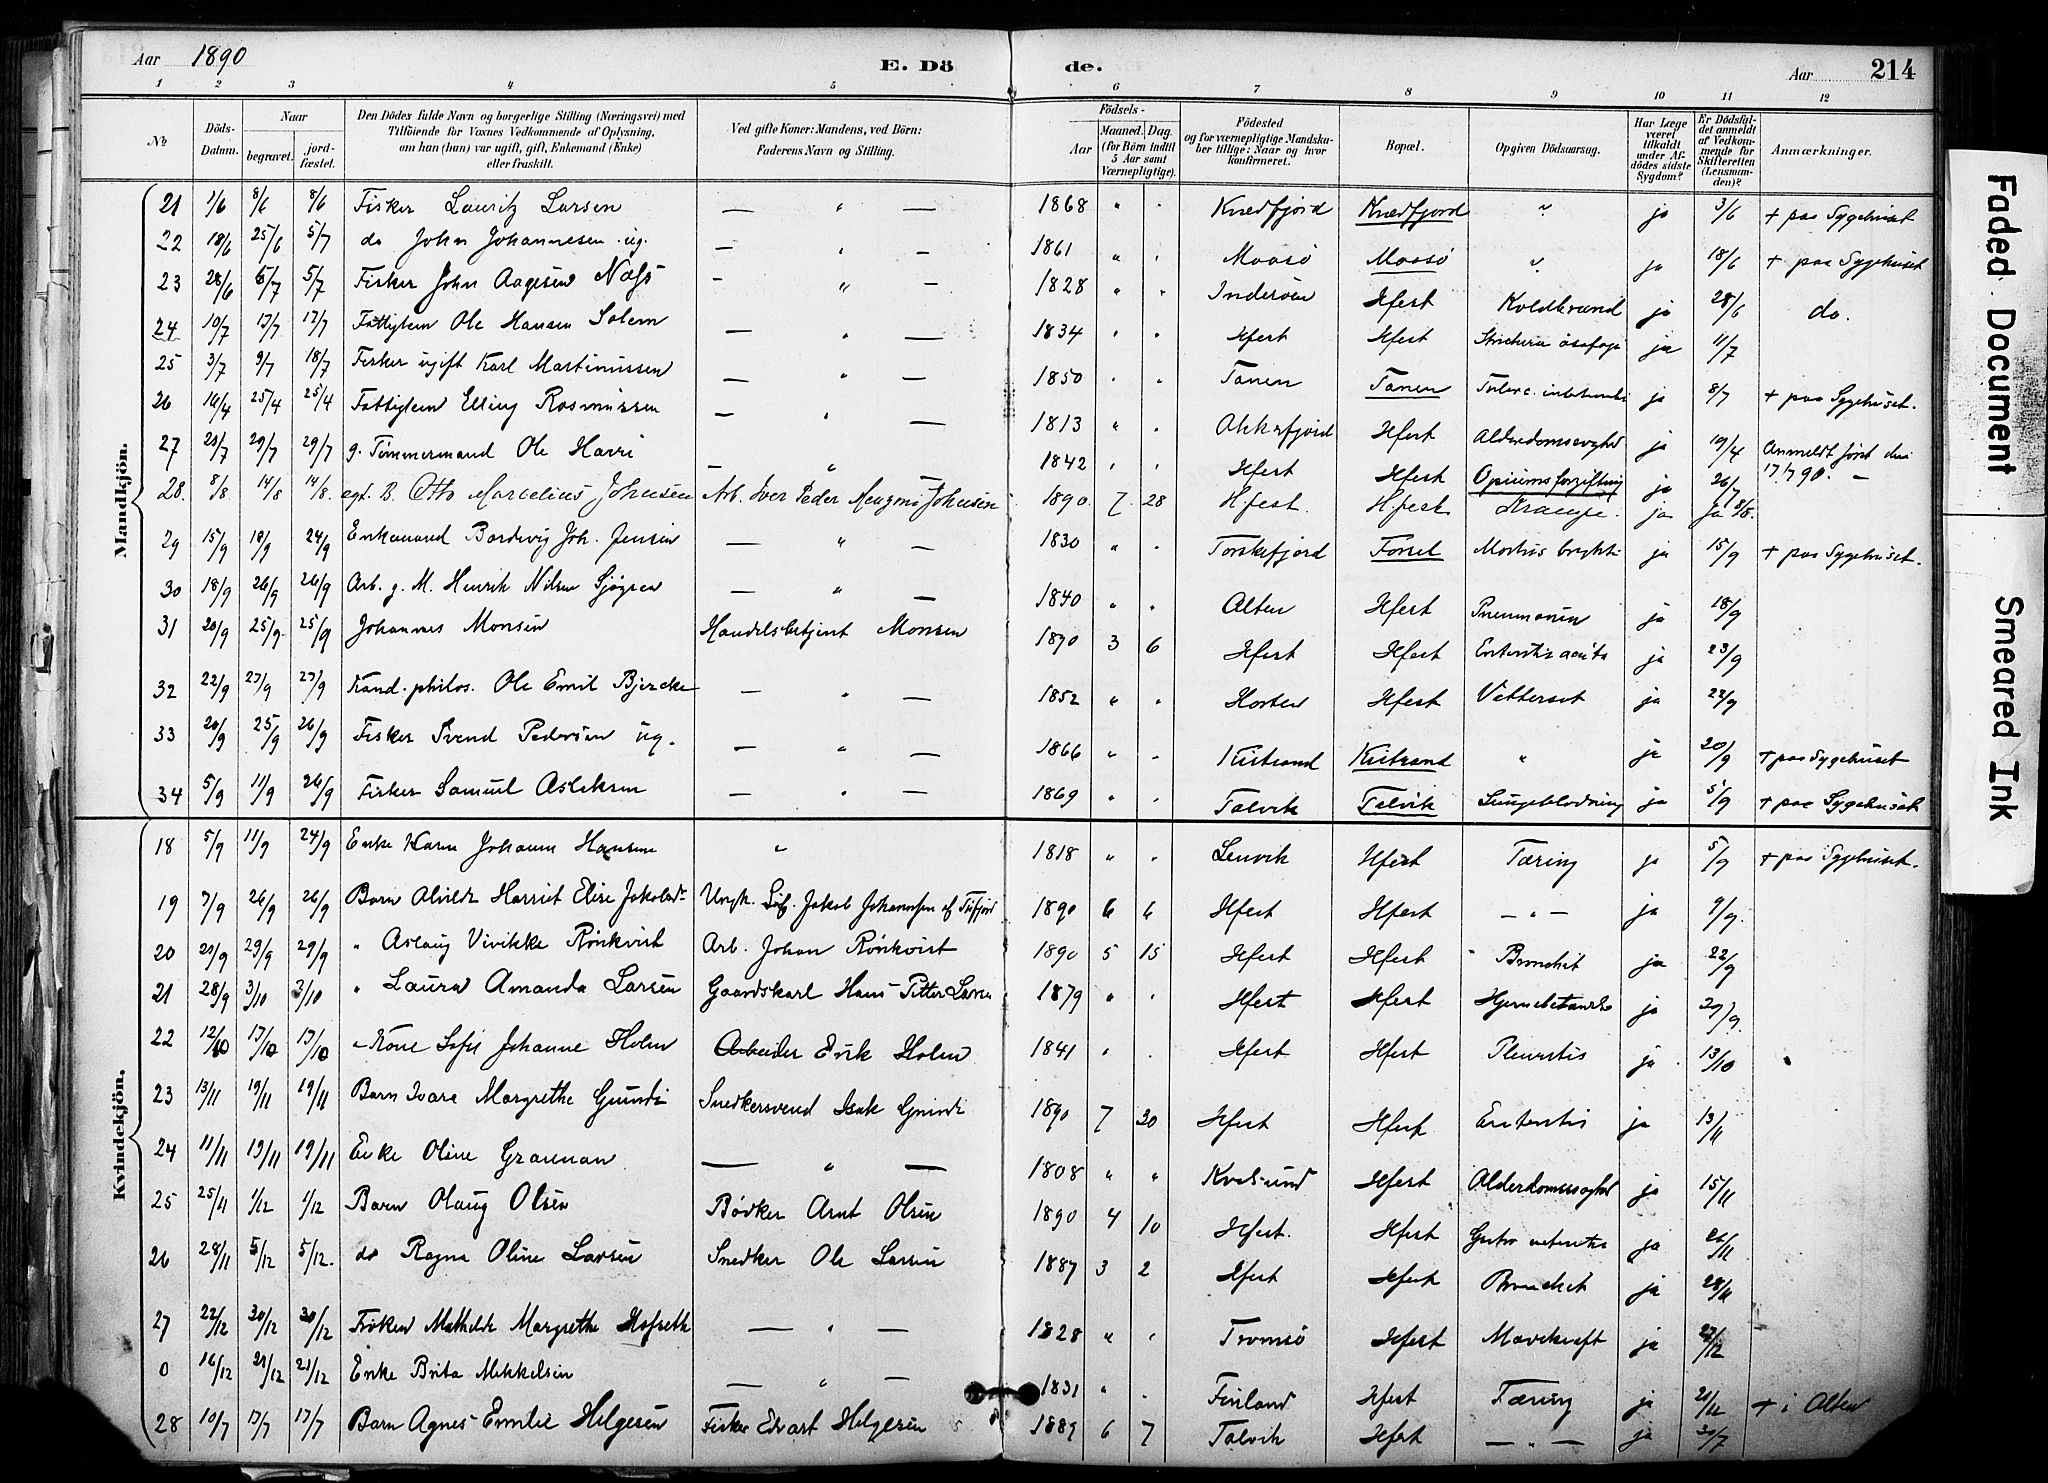 Aar 1890 E. Dö de. Aar 214
1 2 3 4 5 6 7 8 9 10 11 12
No Döds-Datum. Naar begravet. jordfæstet. Den Dödes fulde Navn og borgerlige Stilling (Næringsvei) med Tilföiende for Voxnes Vedkommende af Oplysning, om han (hun) var ugift, gift, Enkemand (Enke) eller fraskilt. Ved gifte Koner: Mandens, ved Börn: Faderens Navn og Stilling. Födsels- Aar Maaned. Dag. (for Börn indtil 5 Aar samt Værnepligtige). Födested og for værnepligtige Mandskaber tillige: Naar og hvor konfirmeret. Bopæl. Opgiven Dödsaarsag. Har Læge været tilkaldt under Afdödes sidste Sygdom? Er Dödsfaldet anmeldt af Vedkommende for Skifteretten (Lensmanden)? Anmærkninger.
Mandkjön.
21 1/6 8/6 8/6 Fisker Lauritz Larsen — " — 1868 " " Kvædfjord Kvædfjord " ja 3/6 + paa Sygehuset
22 18/6 25/6 5/7 do John Johannesen ug. — " 1861 " " Maasö Maasö " ja 18/6 + paa Sygehuset
23 28/6 5/7 5/7 Fisker John Aagesen Næss — " — 1828 " " Inderöen Hfest Koldbrand ja 28/6 do.
24 10/7 17/7 17/7 Fattiglem Ole Hansen Solem — " — 1834 " " Hfest Hfest ja 11/7
25 3/7 9/7 18/7 Fisker ugift Karl Martinussen — " — 1850 " " Tanen Tanen ja 8/7 + paa Sygehuset.
26 19/4 25/4 25/4 Fattiglem Elling Rasmussen — " — 1813 " " Akkarfjord Hfest Alderdomssvaghed ja 19/4 Anmeldt först den 17/7 90. —
27 21/7 29/7 29/7 g. Tömmermand Ole Havri — " — 1842 " " Hfest Hfest Opiumsforgiftning ja 26/7
28. 8/8 14/8 14/8. egt. B. Otto Marcelius Johnsen Arb. Iver Peder Magnus Johnsen 1890 7 28 Hfest. Hfest Krampe. ja ja 9/8.
29 15/9 18/9 24/9 Enkemand Bordevig Joh. Jensen — " — 1830 " " Torskefjord Forsöl Morbus brighti ja 15/9 + paa Sygehuset.
30 18/9 26/9 26/9 Arb. g. M. Henrik Nilsen Sjøgren — " — 1840 " " Alten Hfest Pneumonien ja 18/9
31 20/9 25/9. 25/9 Johannes Monsen Handelsbetjent Monsen 1890 3 6 Hfest Hfest Enteritis acuta ja 23/9
32 22/9 27/9 27/9 Kand. philos. Ole Emil Bjercke — " — 1852 " " Horten Hfest Vattersot ja 22/9
33 20/9 25/9 26/9 Fisker Svend Pedersen ug. — " — 1866 " " Kistrand Kistrand " ja 20/9 + paa Sygehuset
34 5/9 11/9 26/9 Fisker Samuel Aslaksen — " — 1869 " " Talvik Talvik Lungeblødning ja 5/9 + paa Sygehuset
Kvindekjön.
18 5/9 11/9 24/9 Enke Karen Johanna Hansen " 1818 " " Lenvik Hfest Tæring ja 5/9 + paa Sygehuset.
19 7/9 26/9 26/9 Barn Alvilde Harriet Elise Jakobsd. Ungk. Jakob Johannsen af Tufjord 1890 6 6 Hfest Hfest — " — ja 9/9.
20 21/9 29/9 29/9 " Aslaug Vivikke Rönkvist Arb. Johan Rönkvist 1890 5 15 Hfest Hfest Bronchit ja 22/9
21 28/9 3/10 3/10 " Laura Amanda Larsen Gaardskarl Hans Petter Larsen 1879 " " Hfest Hfest Hjernebetændelse ja 29/9.
22 12/10 17/10 17/10 " Kone Sofie Johanne Holen Arbeider Erik Holen 1841 " " Hfest Hfest Pleuritis ja 13/10
23 13/11 19/11 19/11 Barn Ivara Margrethe Grundt Snedkersvend Isak Grundt 1890 7 30 Hfest Hfest Enteritis ja 13/11
24 11/11 19/11 19/11 Enke Oline Granman — " — 1808 " " Kvalsund Hfest Alderdomssvaghed ja 15/11
25 25/11 1/12 1/12 Barn Olaug Olsen Bødker Arnt Olsen 1890 4 10 Hfest. Hfest Gastro enteritis ja 26/11
26 28/11 5/12 5/12. do Ragna Oline Larsen Snedker Ole Larsen 1887 3 2 Hfest Hfest Bronchit ja 28/11
27 22/12 30/12 30/12 Frøken Mathilde Margrethe Hofseth — " — 1828 " " Tromsö Hfest Mavekræft ja 27/12
0 16/12 21/12 21/12 Enke Brita Mikkelsen — " — 1831 " " Finland Hfest Tæring ja 21/12 + i Alten
28 10/7 17/7 17/7 Barn Agnes Emilie Helgesen Fisker Edvart Helgesen 1889 6 7 Talvik Hfest — " — ja 30/7
Faded Document
Smeared Ink